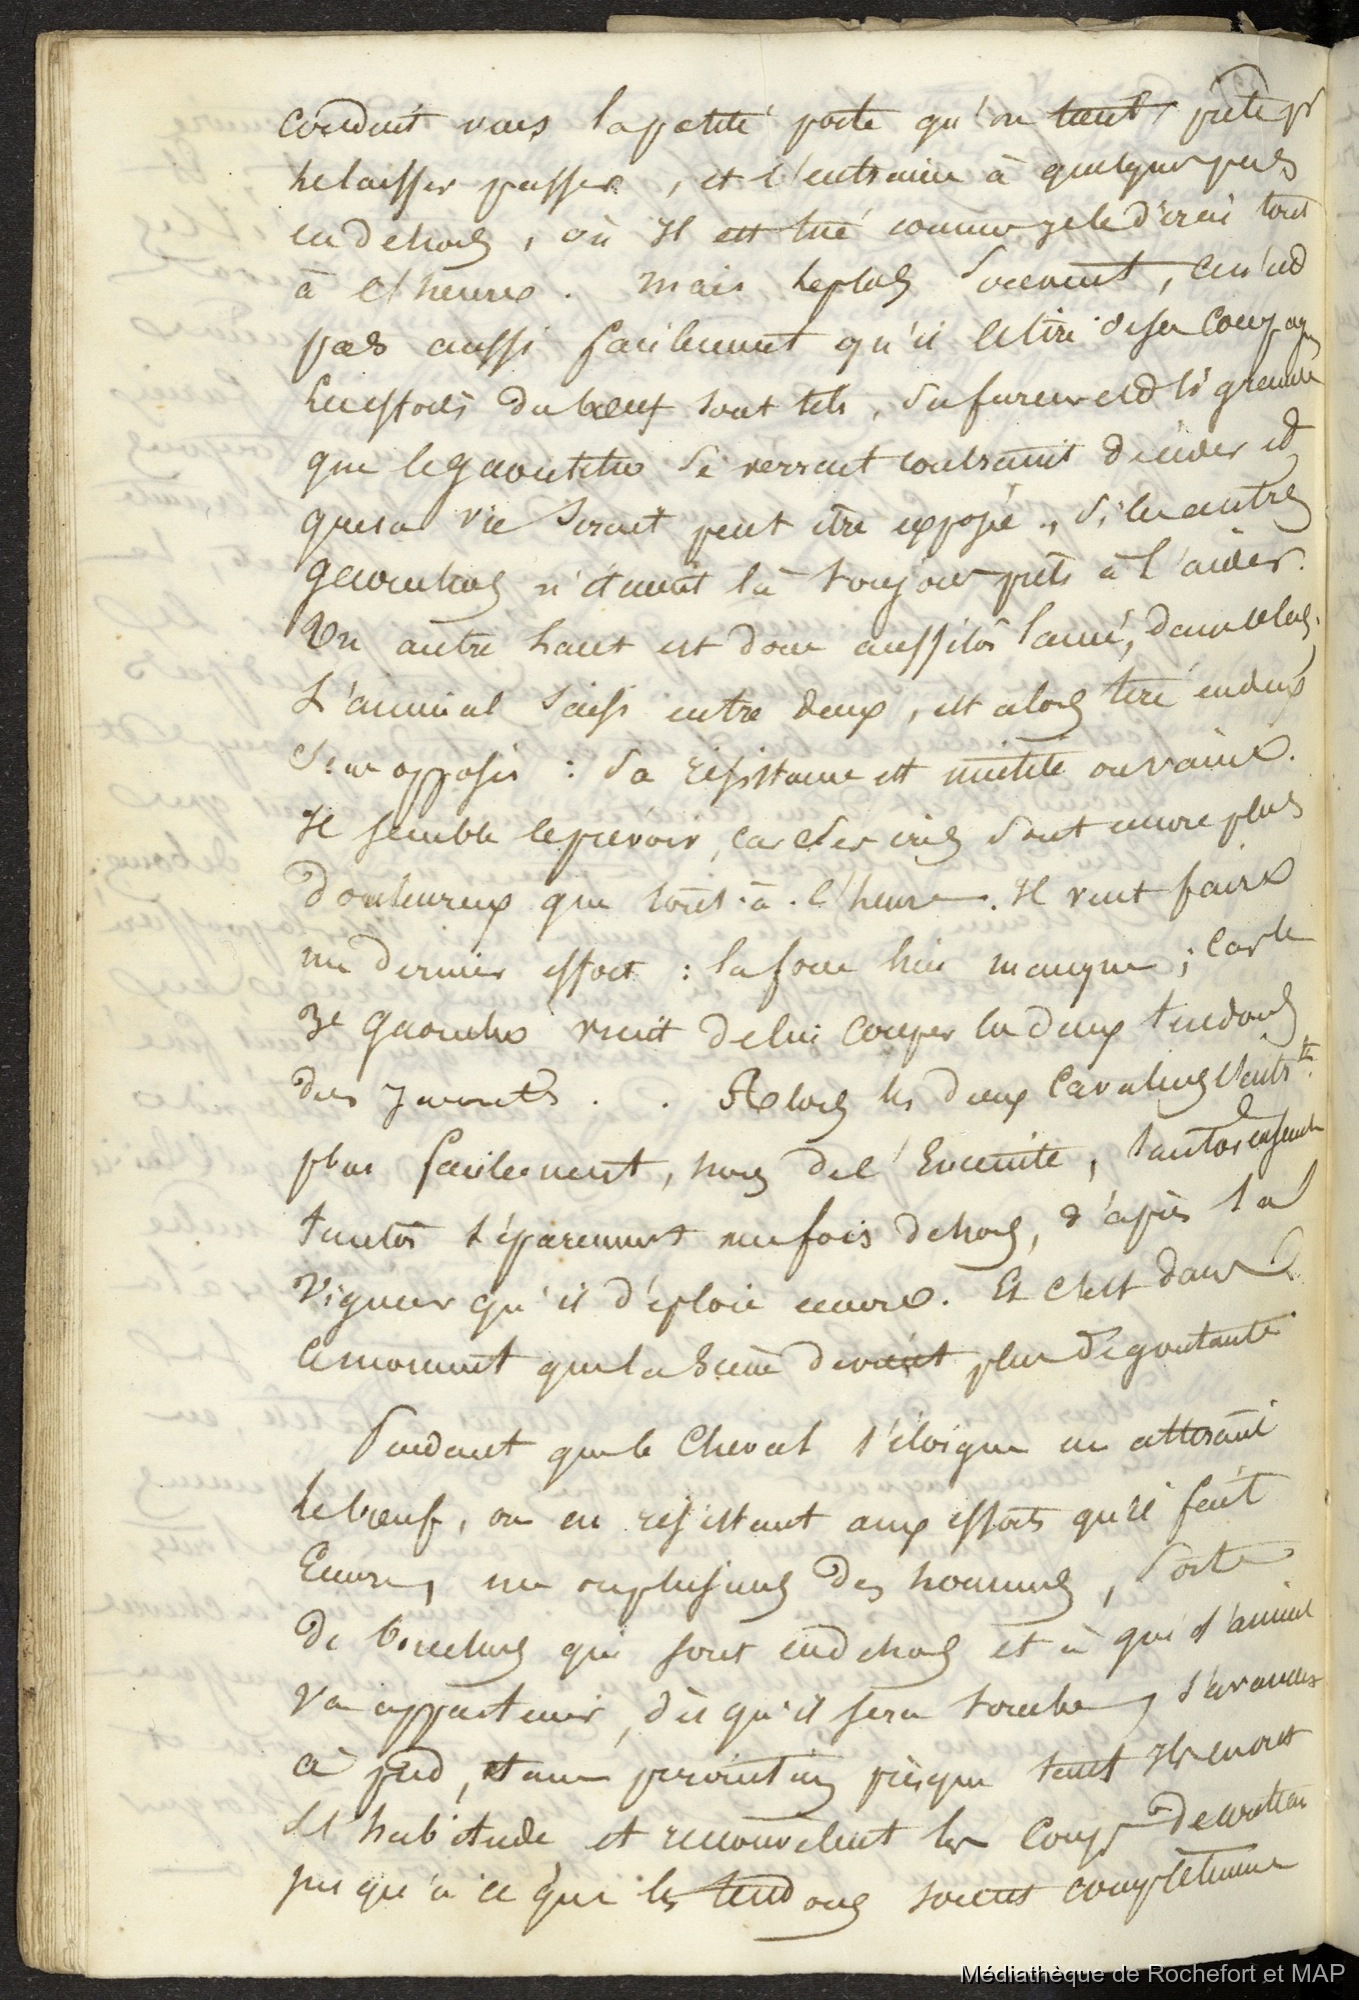 conduit vers la petite porte qu'on tient prête pr
le laisser passer, et l'entraine à quelques pas
en dehors, où Il est tué comme je le dirai tout
à l'heure. Mais le plus souvent, ce n'est
pas aussi facilement qu'il le tire de sa
les efforts du bœuf sont tels, sa fureur est si grande
que le gaoucho se verrait contraint de céder et
que sa vie serait peut être exposée, si les autres
gaouchos n'étaient là toujours prêts à l'aider.
Un autre est donc aussitôt lancé, dans le lacs.
L'animal saisi entre deux, est alors tiré en deux
sens opposés : sa résistance est inutile ou vaine.
Il semble le prévoir, car ses cris sont encore plus
douloureux que tout-à-l'heure. Il veut faire
un dernier effort : la force lui manque ; car le
3e gaoucho vient de lui couper les deux tendons
des jarrets . . Alors les deux cavaliers
plus facilement, hors de l'Enceinte, tantôt ensemble
tantôt séparément une fois dehors, d'après la
vigueur qu'il déploie encore. Et c'est dans
ce moment que la scène devient plus dégoutante
Pendant que le cheval s'éloigne en attirant
le bœuf, ou en résistant aux efforts qu'il fait
Encore, un ou plusieurs des hommes, sorte
de bouchers qui sont en dehors et à qui l'animal
va appartenir, dès qu'il sera tombé, s'avancent
à pied, et avec précaution presque tant Ils en ont
l'habitude, et renouvellent les coups de couteau
jusqu'à ce que les tendons soient complètement
Médiathèque de Rochefort et MAP